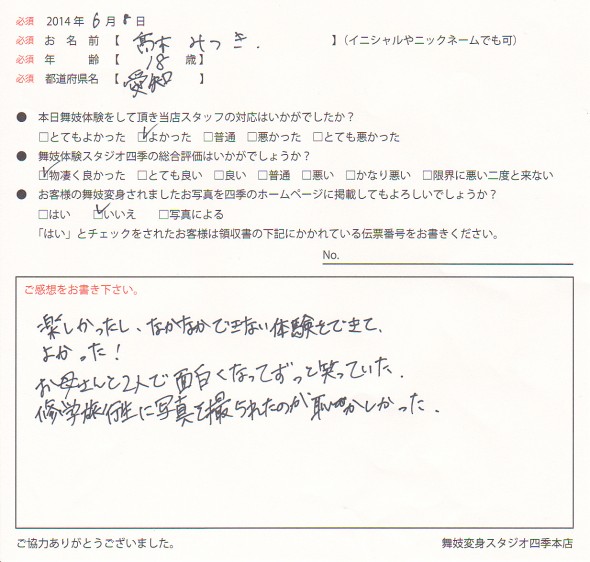 必須 2014年 6月 8日
必須 お名前【 髙木 みつき. 】(イニシャルやニックネームでも可)
必須 年齢【 18 歳】
必須 都道府県名【 愛知 】
● 本日舞妓体験をして頂き当店スタッフの対応はいかがでしたか?
□とてもよかった ☑よかった □普通 □悪かった □とても悪かった
● 舞妓体験スタジオ四季の総合評価はいかがでしょうか?
☑物凄く良かった □とても良い □良い □普通 □悪い □かなり悪い □限界に悪い二度と来ない
● お客様の舞妓変身されましたお写真を四季のホームページに掲載してもよろしいでしょうか?
□はい ☑いいえ □写真による
「はい」とチェックをされたお客様は領収書の下記にかかれている伝票番号をお書きください。
No.
ご感想をお書き下さい。
楽しかったし、なかなかできない体験をできて、
よかった!
お母さんと2人で面白くなってずっと笑っていた.
修学旅行生に写真を撮られたのが恥ずかしかった.
ご協力ありがとうございました。 舞妓変身スタジオ四季本店